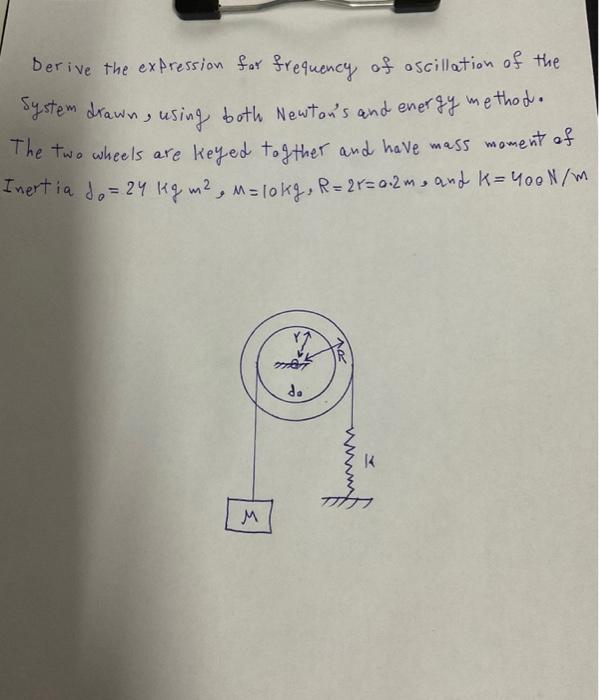 Derive the expression for frequency of oscillation of the
System drawn, using both Newton's and energy method.
The two wheels are keyed togther and have mass moment of
Inertia do = 24 kg m², M=10kg, R=2r=0.2m, and K=400N/m
r
R
do
K
M